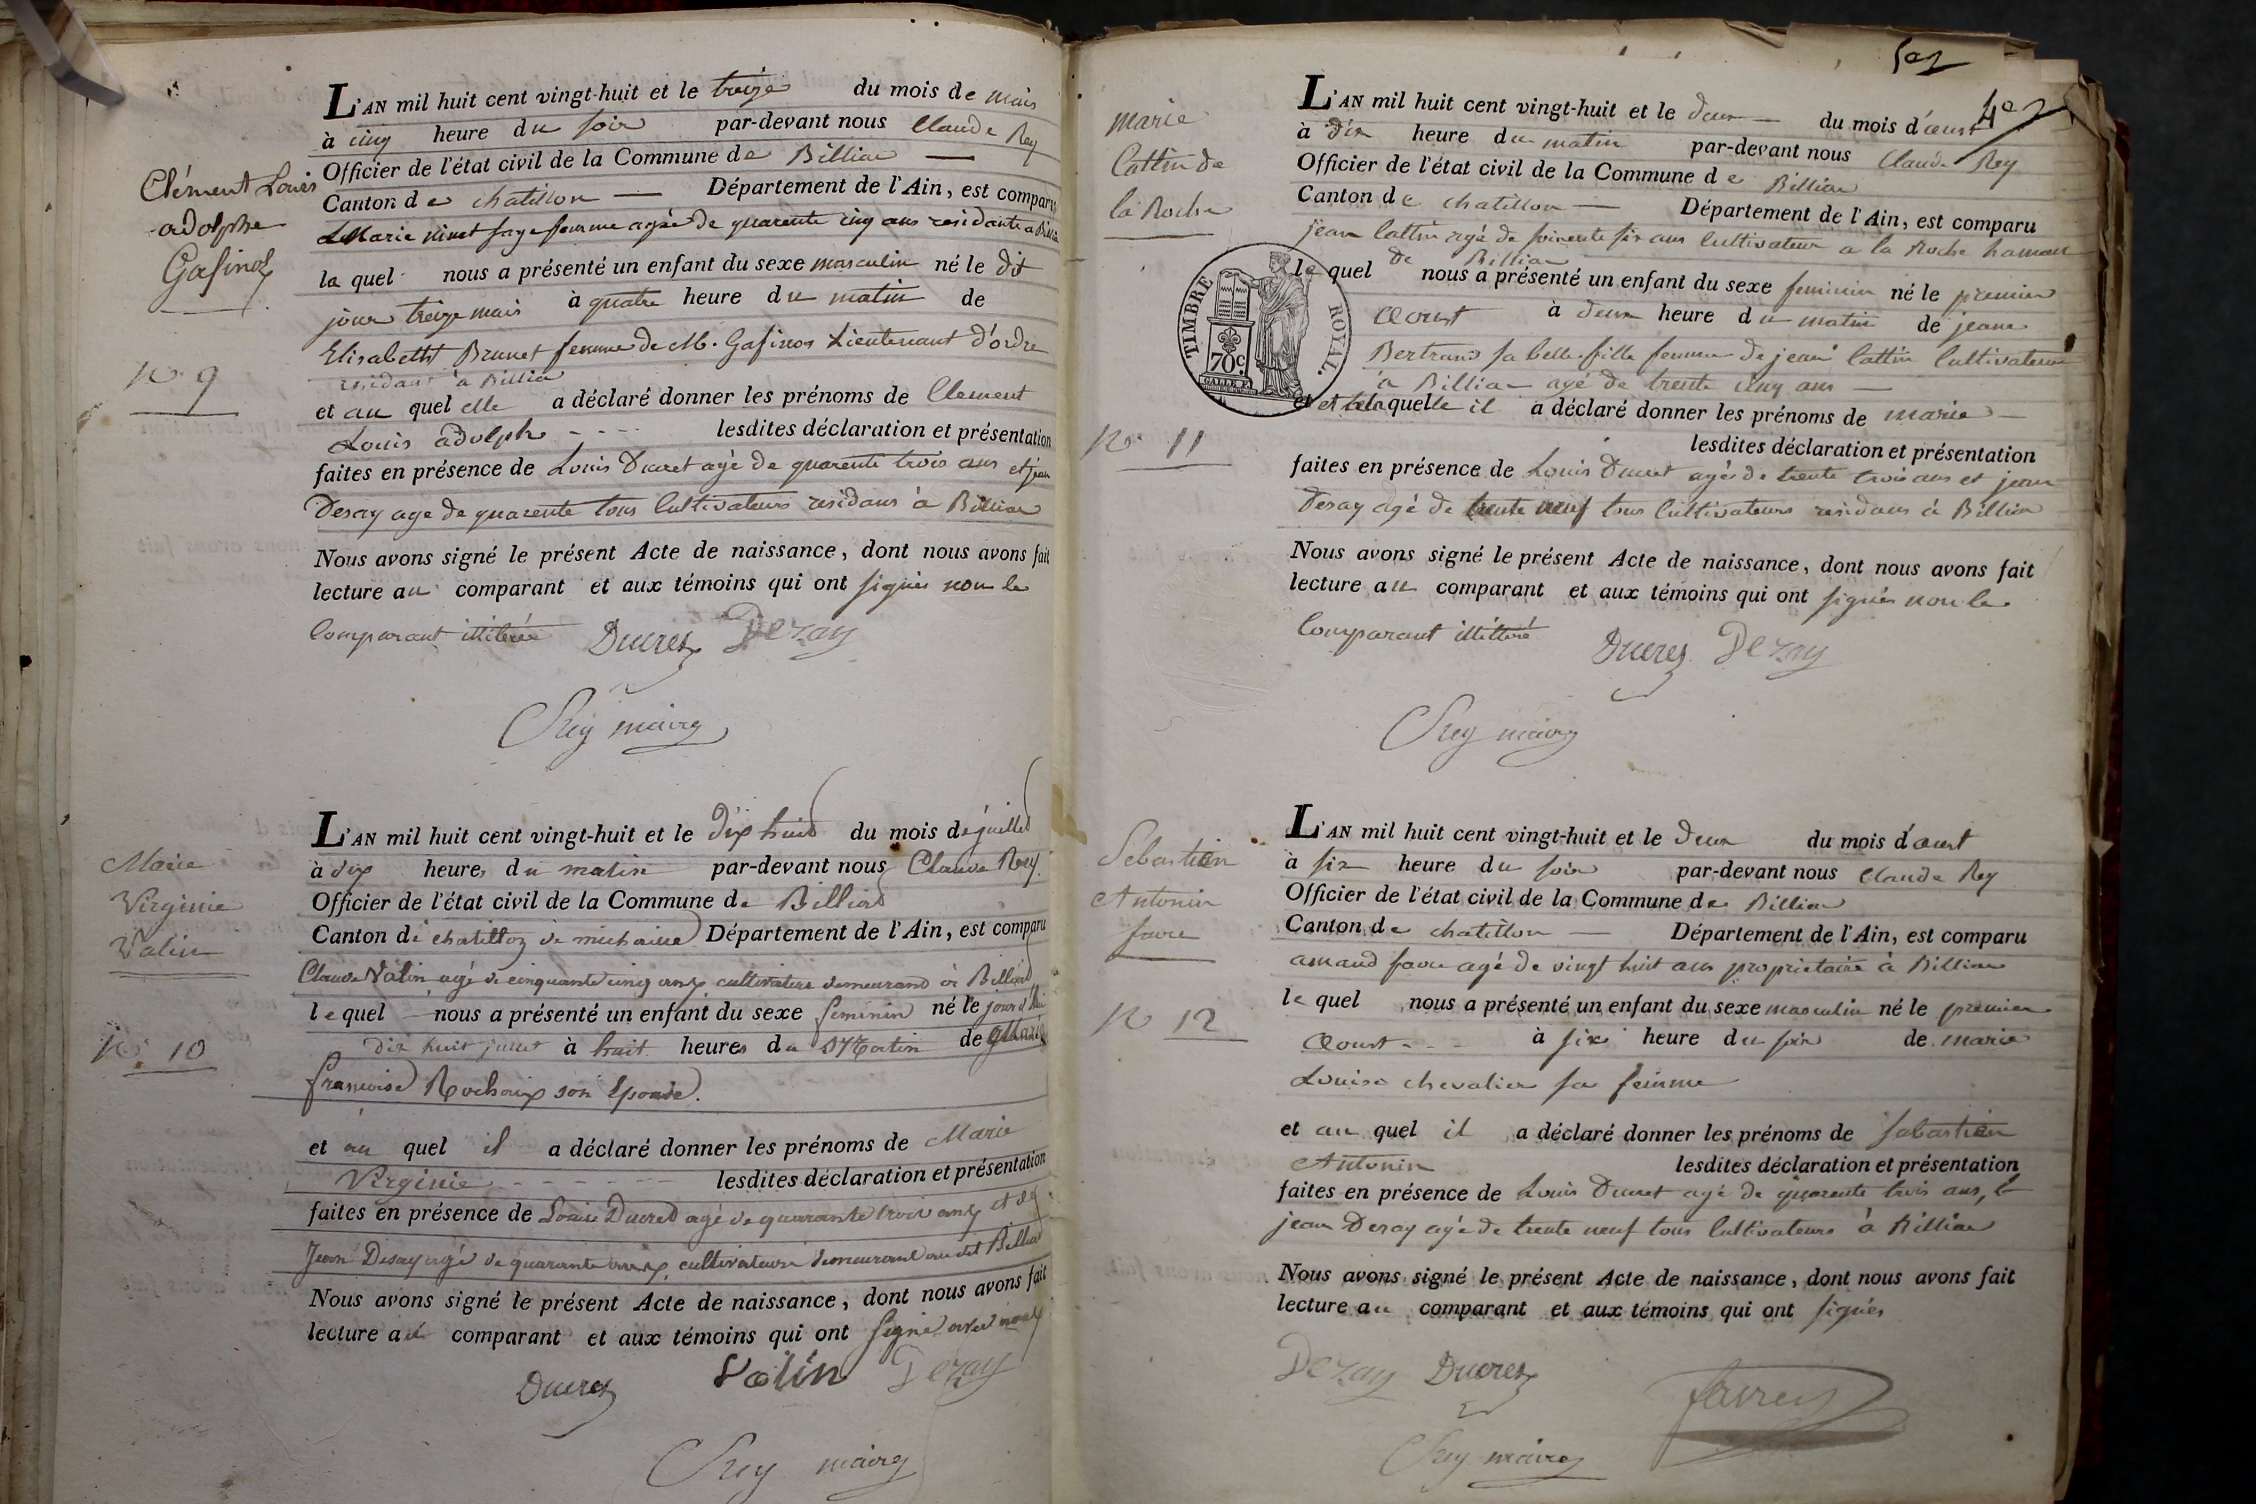 Clément Louis
adolphe
Gafinos
No 9
L'AN mil huit cent vingt-huit et le treize du mois de mais
à cinq heure du soir par-devant nous Claude Rey
Officier de l'état civil de la Commune de Billiar
Canton de chatillon Département de l'Ain, est comparu
Marie ninet sage femme agée de quarente cinq ans residante a
la quel nous a présenté un enfant du sexe masculin né le dit
jour treize mais à quatre heure du matin de
Elisabeth Brunet femme de M. Gafinos Lieutenant d'ordre
residant à Billiar
et au quel elle a déclaré donner les prénoms de Clement
Louis adolphe lesdites déclaration et présentation
faites en présence de Louis Ducret agé de quarente trois ans et jean
Desay age de quarente tous Cultivateurs residans à Billiar
Nous avons signé le présent Acte de naissance, dont nous avons fait
lecture au comparant et aux témoins qui ont signés non le
Comparant illiteré Ducret Dezay
Rey maire
Marie
Virginie
Valin
No. 10
L'AN mil huit cent vingt-huit et le dix huit du mois de juillet
à dix heures du matin par-devant nous Claude Rey
Officier de l'état civil de la Commune de Billiad
Canton de chatillon de michaille Département de l'Ain, est comparu
Claude Valin agé de cinquante cinq ans cultivateur demeurand à Billiad
le quel nous a présenté un enfant du sexe feminin né le jour
dix huit juillet à huit heures du Matin de Marie
francoise Rochaix son Epouse.
et au quel il a déclaré donner les prénoms de Marie
Virginie lesdites déclaration et présentation
faites en présence de Louis Ducred agé de quarante trois ans et de
Jean Desay agé de quarante cultivateurs demeurant audit Billiad
Nous avons signé le présent Acte de naissance, dont nous avons fait
lecture au comparant et aux témoins qui ont signé avec nous
Ducret Valin Dezay
Rey maire
502
marie
Cattin de
la Roche
No 11
L'AN mil huit cent vingt-huit et le deux du mois d'aoust
à dix heure du matin par-devant nous Claude Rey
Officier de l'état civil de la Commune de Billiar
Canton de chatillon Département de l'Ain, est comparu
jean Cattin agé de soixente six ans Cultivateur a la Roche hamau
de Billiar
le quel nous a présenté un enfant du sexe feminin né le premier
aoust à deux heure du matin de jeane
TIMBRE ROYAL.
70c.
Bertrand sa belle-fille femme de jean Cattin Cultivateur
à Billiar agé de trente cinq ans
et a laquelle il a déclaré donner les prénoms de marie
lesdites déclaration et présentation
faites en présence de Louis Ducret agés de trente trois ans et jean
Desay agé de trente neuf tous Cultivateurs residans à Billiar
Nous avons signé le présent Acte de naissance, dont nous avons fait
lecture au comparant et aux témoins qui ont signés non le
Comparant illitteré Ducret Dezay
Rey maire
Sebastien
Antonin
favre
No 12
L'AN mil huit cent vingt-huit et le deux du mois d'aoust
à six heure du soir par-devant nous Claude Rey
Officier de l'état civil de la Commune de Billiar
Canton de chatillon Département de l'Ain, est comparu
amand favre agé de vingt huit ans proprietaire à Billiar
le quel nous a présenté un enfant du sexe masculin né le premier
aoust à six heure du soir de marie
Louise chevalier sa femme
et au quel il a déclaré donner les prénoms de Sabastien
Antonin lesdites déclaration et présentation
faites en présence de Louis Ducret agé de quarente trois ans, et
jean Desay agé de trente neuf tous Cultivateurs à Billiar
Nous avons signé le présent Acte de naissance, dont nous avons fait
lecture au comparant et aux témoins qui ont signés
Dezay Ducret favre
Rey maire